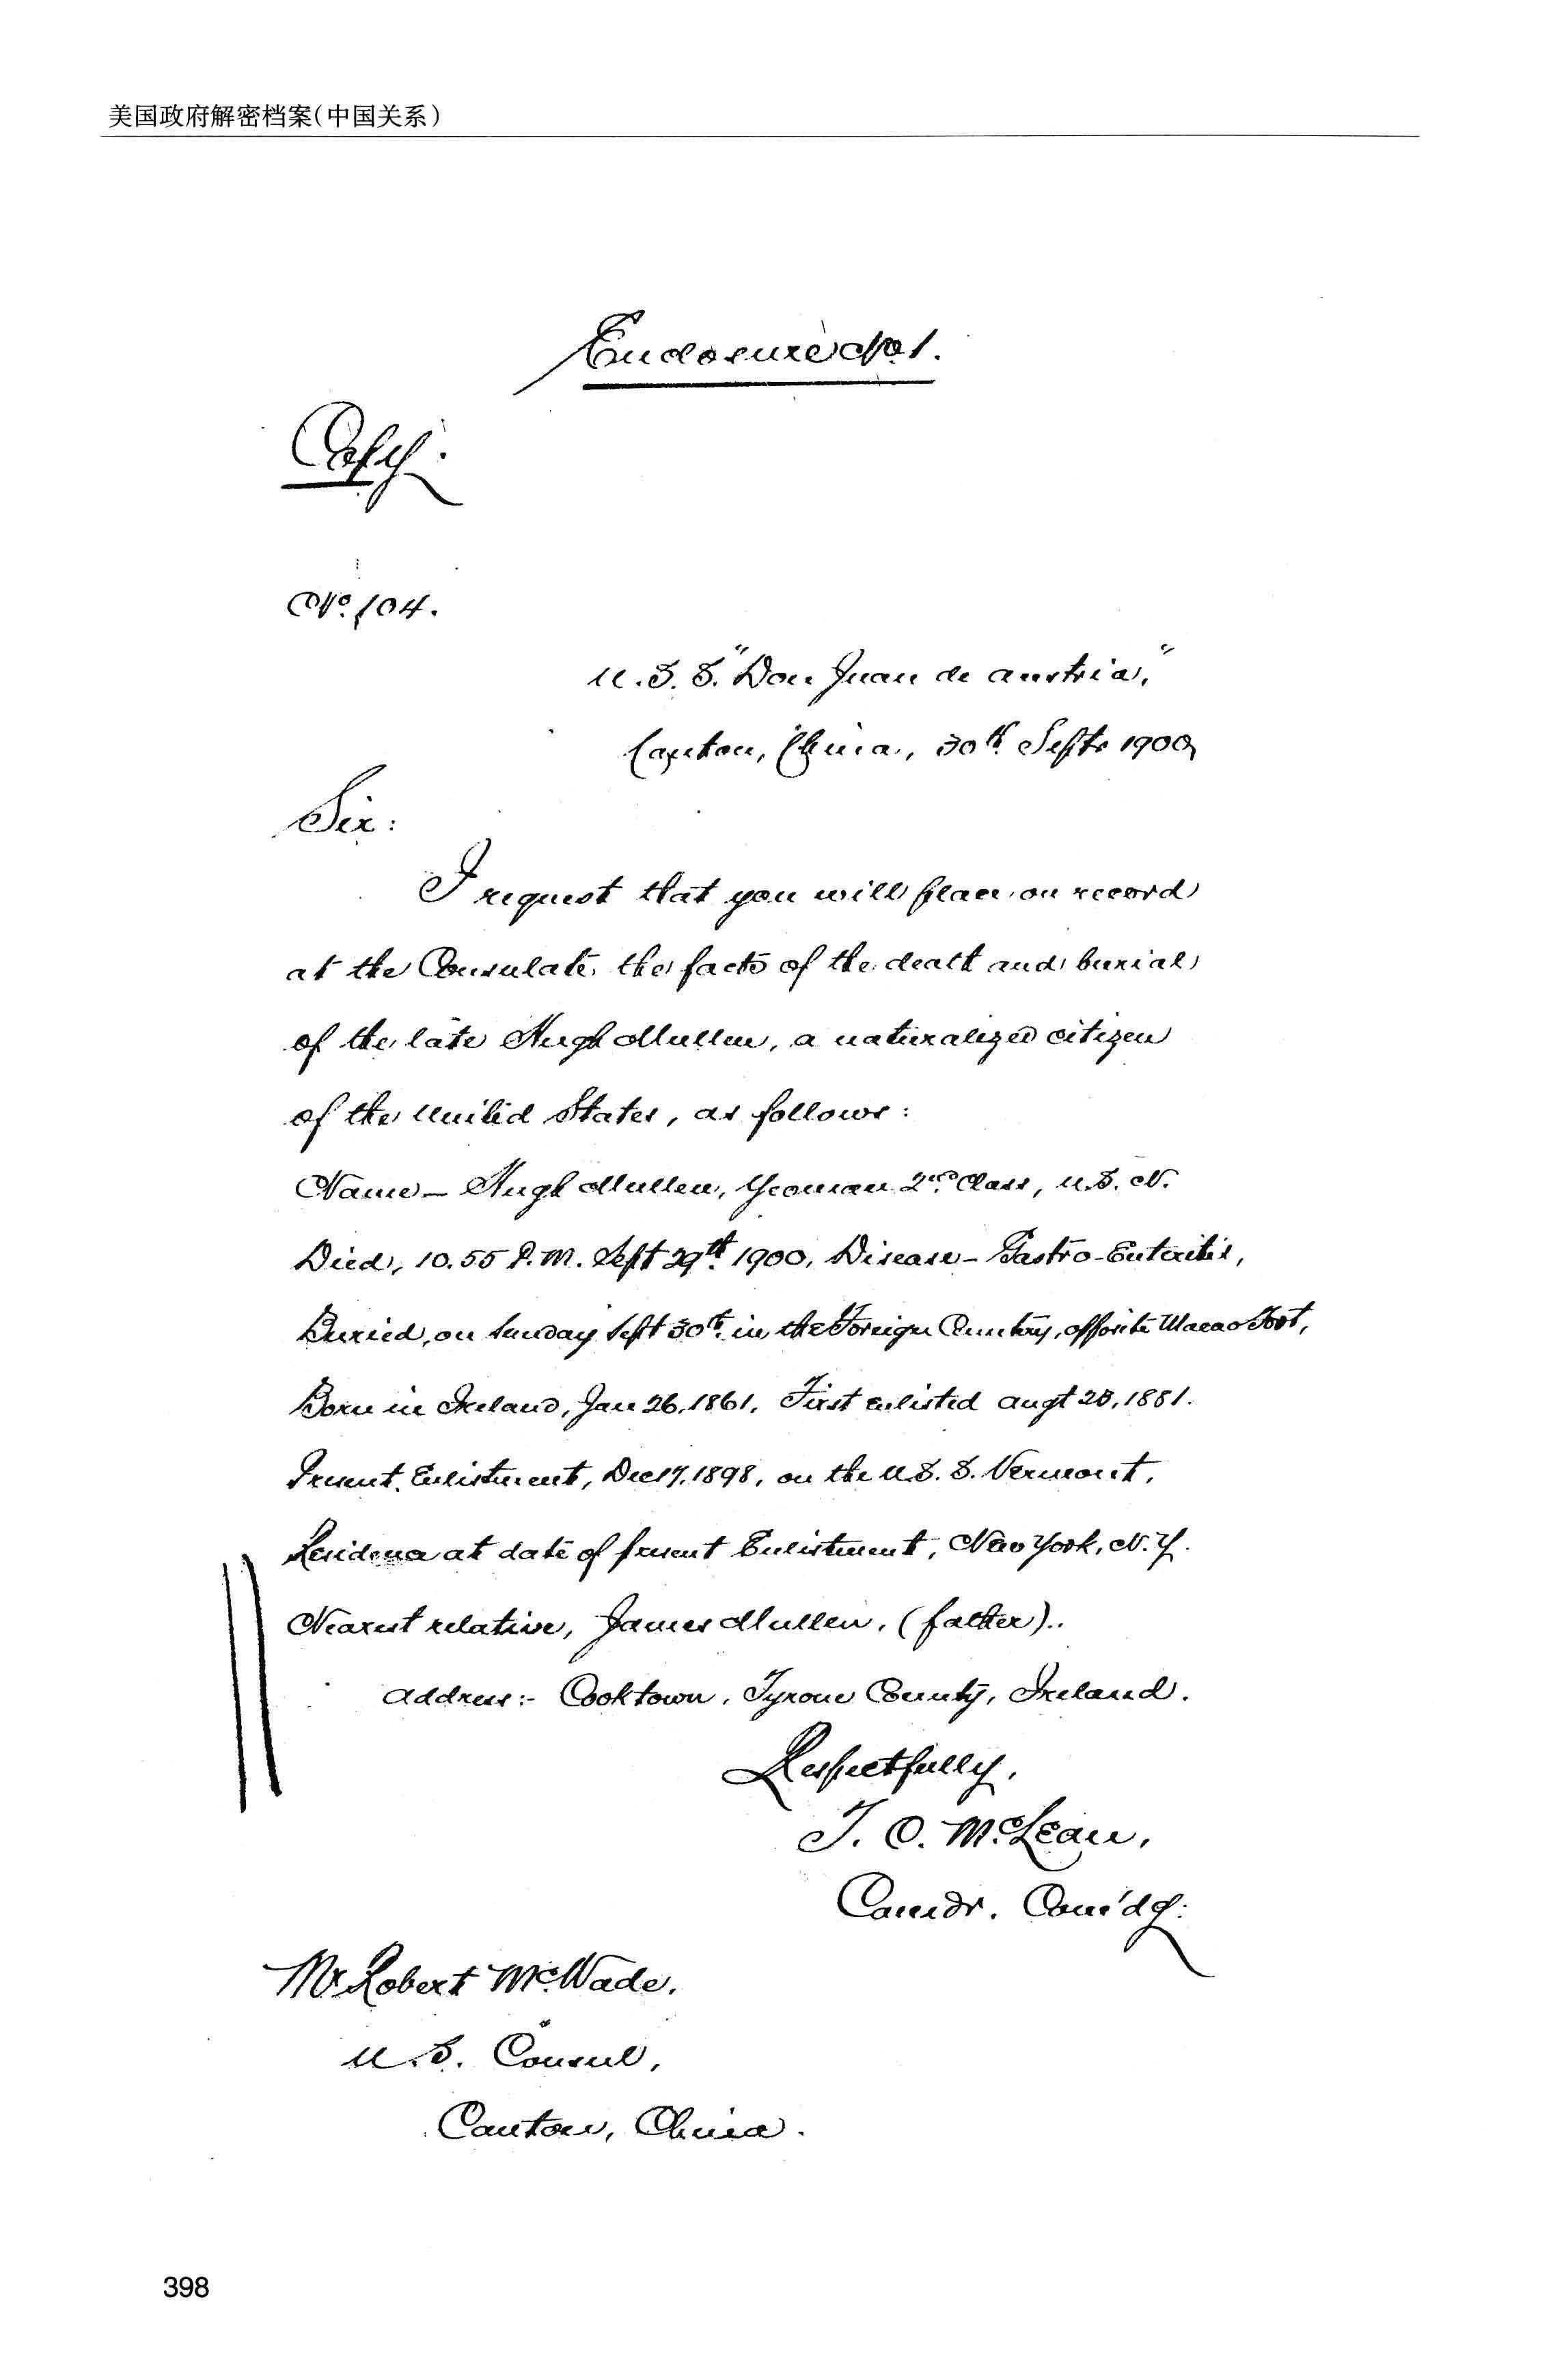 美国政府解密档案(中国关系)
Enclosure No 1.
Copy.
No. 104.
U. S. S. "Don Juan de Austria,"
Canton, China, 30th Sept. 1900
Sir:
I request that you will place on record
at the Consulate the facts of the death and burial
of the late Hugh Mullen, a naturalized citizen
of the United States, as follows:
Name — Hugh Mullen, Yeoman 2nd Class, U.S. N.
Died, 10.55 P.M. Sept 29th 1900, Disease — Gastro-Enteritis,
Buried, on Sunday Sept 30th in the Foreign Cemetery, opposite Macao Fort,
Born in Ireland, Jan 26, 1861. First enlisted Augt 23, 1881.
Present Enlistment, Dec 17, 1898, on the U.S. S. Vermont,
Residence at date of present Enlistment, New York, N.Y.
Nearest relative, James Mullen, (father).
Address:- Cooktown, Tyrone County, Ireland.
Respectfully,
T. C. McLean,
Comdr. Com'dg.
Mr Robert McWade,
U.S. Consul,
Canton, China.
398